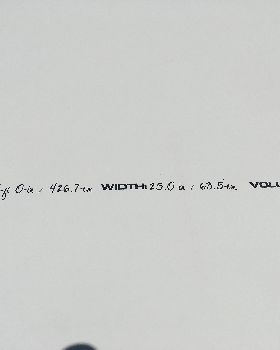 0-in : 426.7-cm WIDTH: 25.0 in : 63.5-cm VOLU